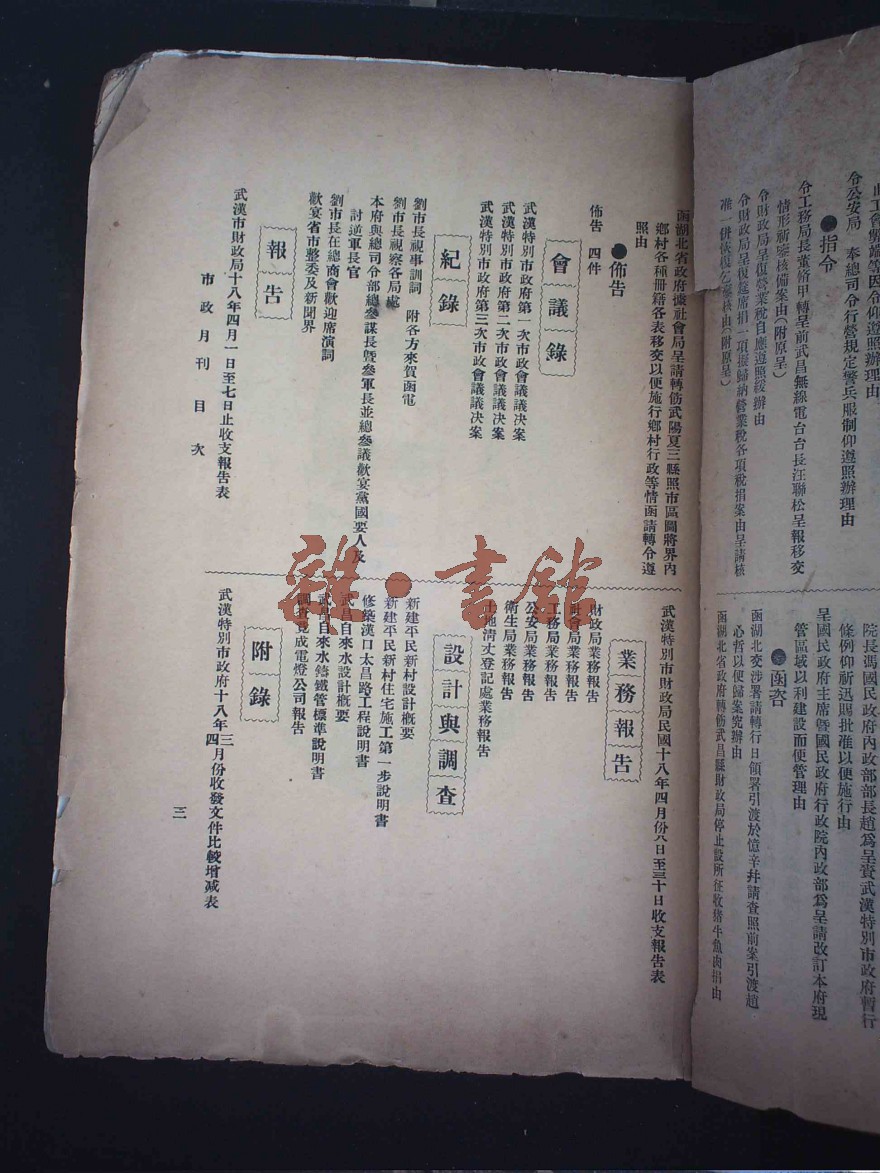 此工會弊端等因令仰遵照辦理由
令公安局 奉總司令行營規定警兵服制仰遵照辦理由
●指令
令工務局長董修甲轉呈前武昌無線電台台長汪聯松呈報移交
情形祈鑒核備案由(附原呈)
令財政局呈復營業稅自應遵照緩辦由
令財政局呈復筵席捐一項擬歸納營業稅各項稅捐案由呈請核
准一併恢復乞鑒核由(附原呈)
院長馮國民政府內政部部長趙爲呈賫武漢特別市政府暫行
條例仰祈迅賜批准以便施行由
呈國民政府主席暨國民政府行政院內政部爲呈請改訂本府現
管區域以利建設而便管理由
●函咨
函湖北交涉署請轉行日領署引渡於憶辛井請查照前案引渡趙
心哲以便歸案究辦由
函湖北省政府轉飭武昌縣財政局停止設所征收猪牛魚肉捐由
函湖北省政府據社會局呈請轉飭武陽夏三縣照市區圖將界內
鄉村各種冊籍各表移交以便施行鄉村行政等情函請轉令遵
照由
●佈告
佈告 四件
會議錄
武漢特別市政府第一次市政會議議决案
武漢特別市政府第二次市政會議議决案
武漢特別市政府第三次市政會議議决案
紀錄
劉市長視事訓詞 附各方來賀函電
劉市長視察各局處
本府與總司令部總參謀長暨參軍長並總參議歡宴黨國要人及
討逆軍長官
劉市長在總商會歡迎席演詞
歡宴省市整委及新聞界
報告
武漢市財政局十八年四月一日至七日止收支報告表
武漢特別市財政局民國十八年四月份八日至三十日收支報告表
業務報告
財政局業務報告
社會局業務報告
工務局業務報告
公安局業務報告
衛生局業務報告
土地清丈登記處業務報告
設計與調查
新建平民新村設計概要
新建平民新村住宅施工第一步說明書
修築漢口太昌路工程說明書
武昌自來水設計概要
武昌自來水鑄鐵管標準說明書
調查竟成電燈公司報告
附錄
武漢特別市政府十八年三四月份收發文件比較增减表
市政月刊目次
三
雜·書館